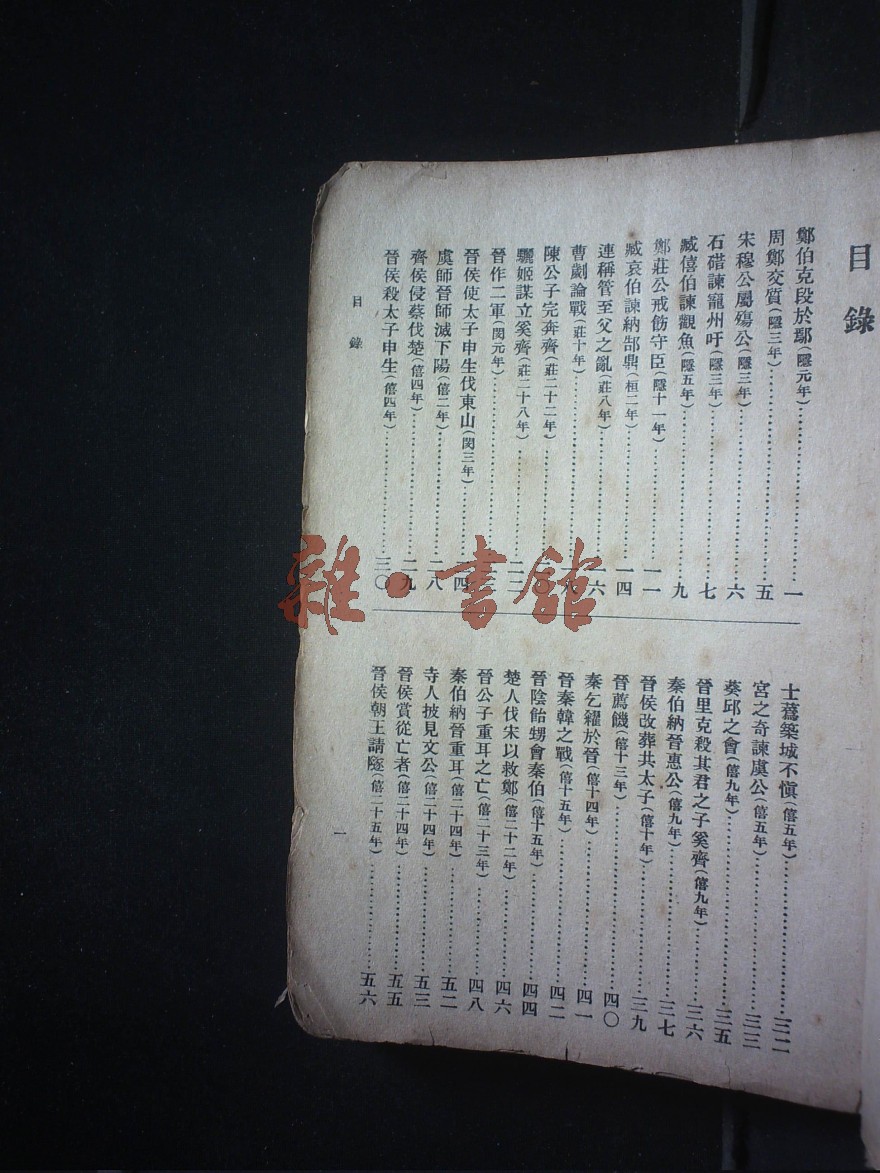 目錄
鄭伯克段於鄢(隱元年)……一
周鄭交質(隱三年)……五
宋穆公屬殤公(隱三年)……六
石碏諫寵州吁(隱三年)……七
臧僖伯諫觀魚(隱五年)……九
鄭莊公戒飭守臣(隱十一年)……一一
臧哀伯諫納郜鼎(桓二年)……一四
連稱管至父之亂(莊八年)……一六
曹劌論戰(莊十年)
陳公子完奔齊(莊二十二年)……二〇
驪姬謀立奚齊(莊二十八年)……二二
晉作二軍(閔元年)
晉侯使太子申生伐東山(閔三年)……二四
虞師晉師滅下陽(僖二年)……二八
齊侯侵蔡伐楚(僖四年)……二九
晉侯殺太子申生(僖四年)……三〇
士蔿築城不愼(僖五年)……三二
宮之奇諫虞公(僖五年)……三三
葵邱之會(僖九年)……三五
晉里克殺其君之子奚齊(僖九年)……三六
秦伯納晉惠公(僖九年)……三七
晉侯改葬共太子(僖十年)……三九
晉薦饑(僖十三年)……四〇
秦乞糴於晉(僖十四年)……四一
晉秦韓之戰(僖十五年)……四二
晉陰飴甥會秦伯(僖十五年)……四四
楚人伐宋以救鄭(僖二十二年)……四六
晉公子重耳之亡(僖二十三年)……四八
秦伯納晉重耳(僖二十四年)……五二
寺人披見文公(僖二十四年)……五三
晉侯賞從亡者(僖二十四年)……五五
晉侯朝王請隧(僖二十五年)……五六
目錄
一
雜·書館